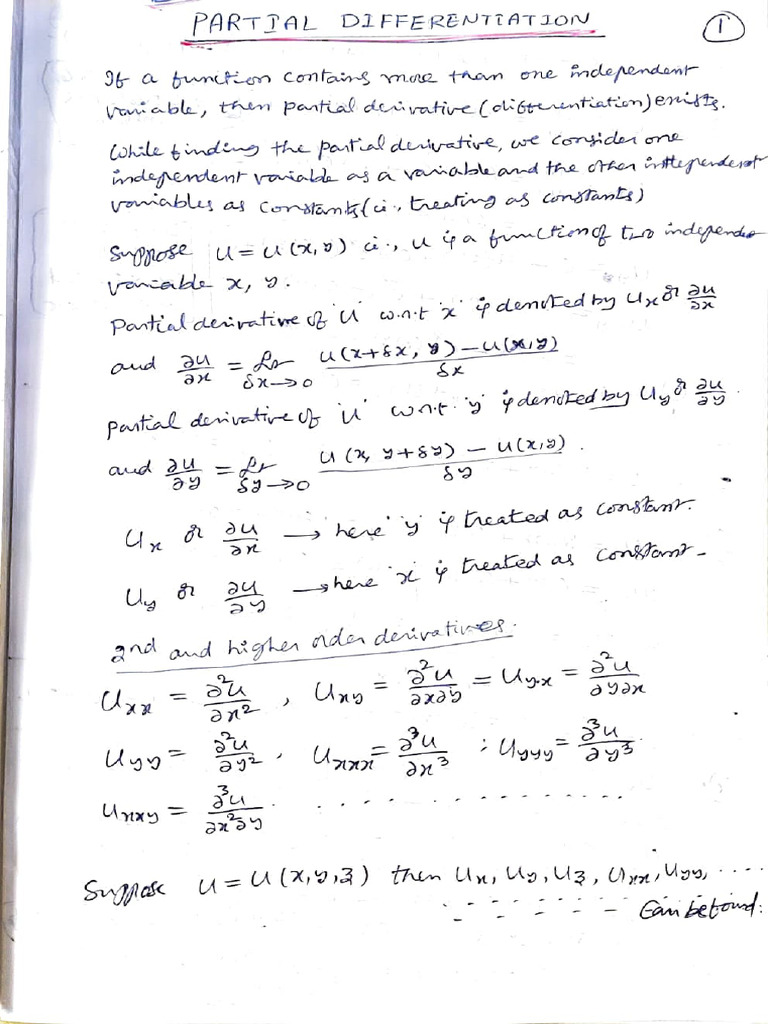 PARTIAL DIFFERENTIATION
1
If a function contains more than one independent
variable, then partial derivative (differentiation) exists.
While finding the partial derivative, we consider one
independent variable as a variable and the other independent
variables as constants (i.e., treating as constants)
Suppose u = u(x,y) i.e., u is a function of two independent
variable x, y.
Partial derivative of 'u' w.r.t 'x' is denoted by uₓ or ∂u/∂x
and ∂u/∂x = Lt δx→0 (u(x+δx, y) − u(x,y))/δx
partial derivative of 'u' w.r.t. 'y' is denoted by u_y or ∂u/∂y.
and ∂u/∂y = Lt δy→0 (u(x, y+δy) − u(x,y))/δy.
u_x or ∂u/∂x → here 'y' is treated as constant.
u_y or ∂u/∂y → here 'x' is treated as constant.
2nd and higher order derivatives.
u_xx = ∂²u/∂x², u_xy = ∂²u/∂x∂y = u_yx = ∂²u/∂y∂x
u_yy = ∂²u/∂y², u_xxx = ∂³u/∂x³ ; u_yyy = ∂³u/∂y³.
u_xxy = ∂³u/∂x²∂y. . . . . . . . . . . . . . .
Suppose u = u(x,y,z) then u_x, u_y, u_z, u_xx, u_yy, ....
- - - - - - - Can be found.